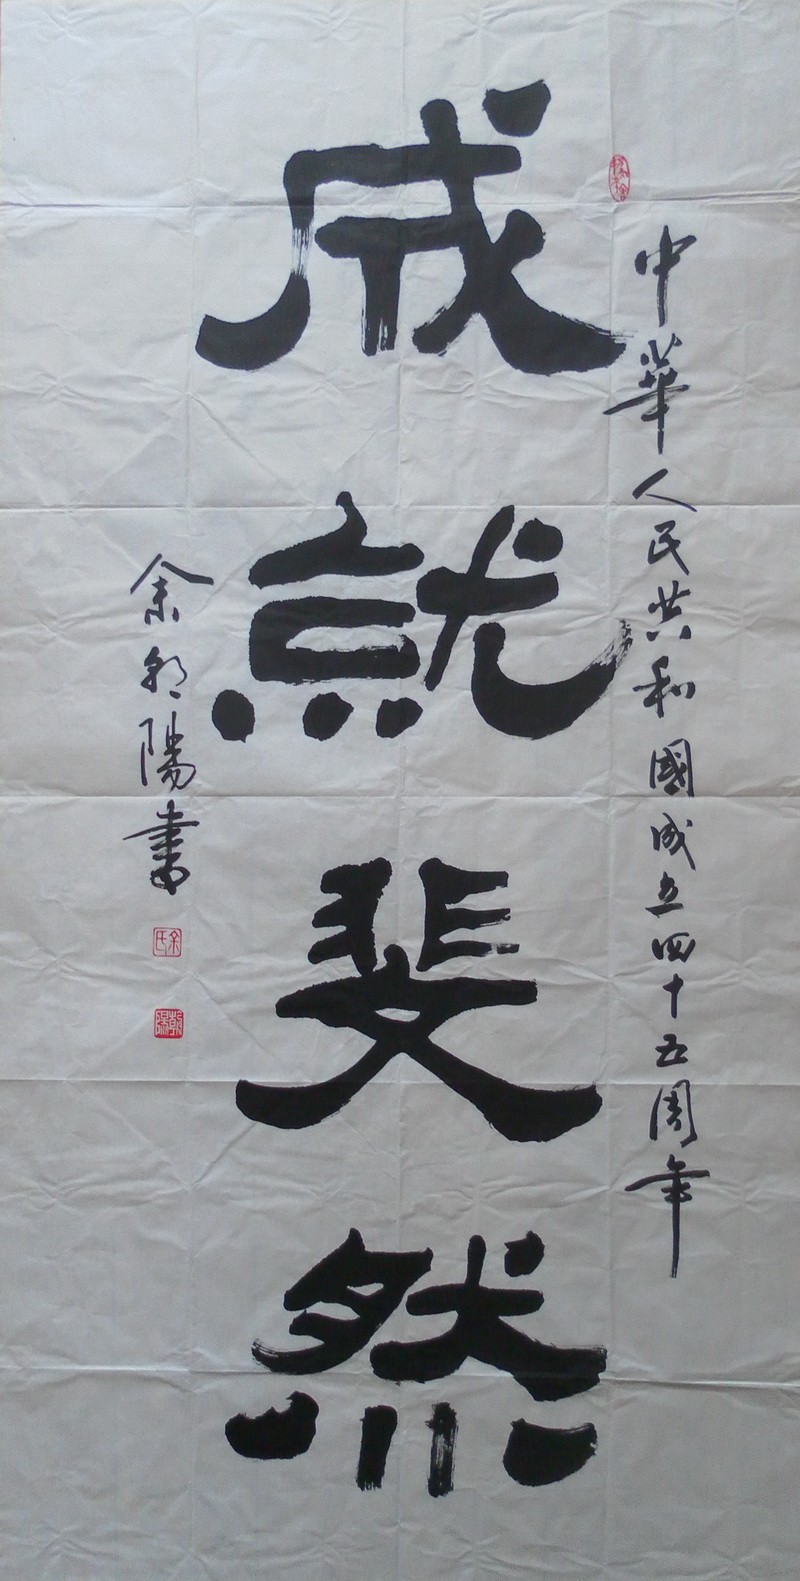 中華人民共和國成立四十五周年
成就斐然
余朝陽書
余氏
朝陽